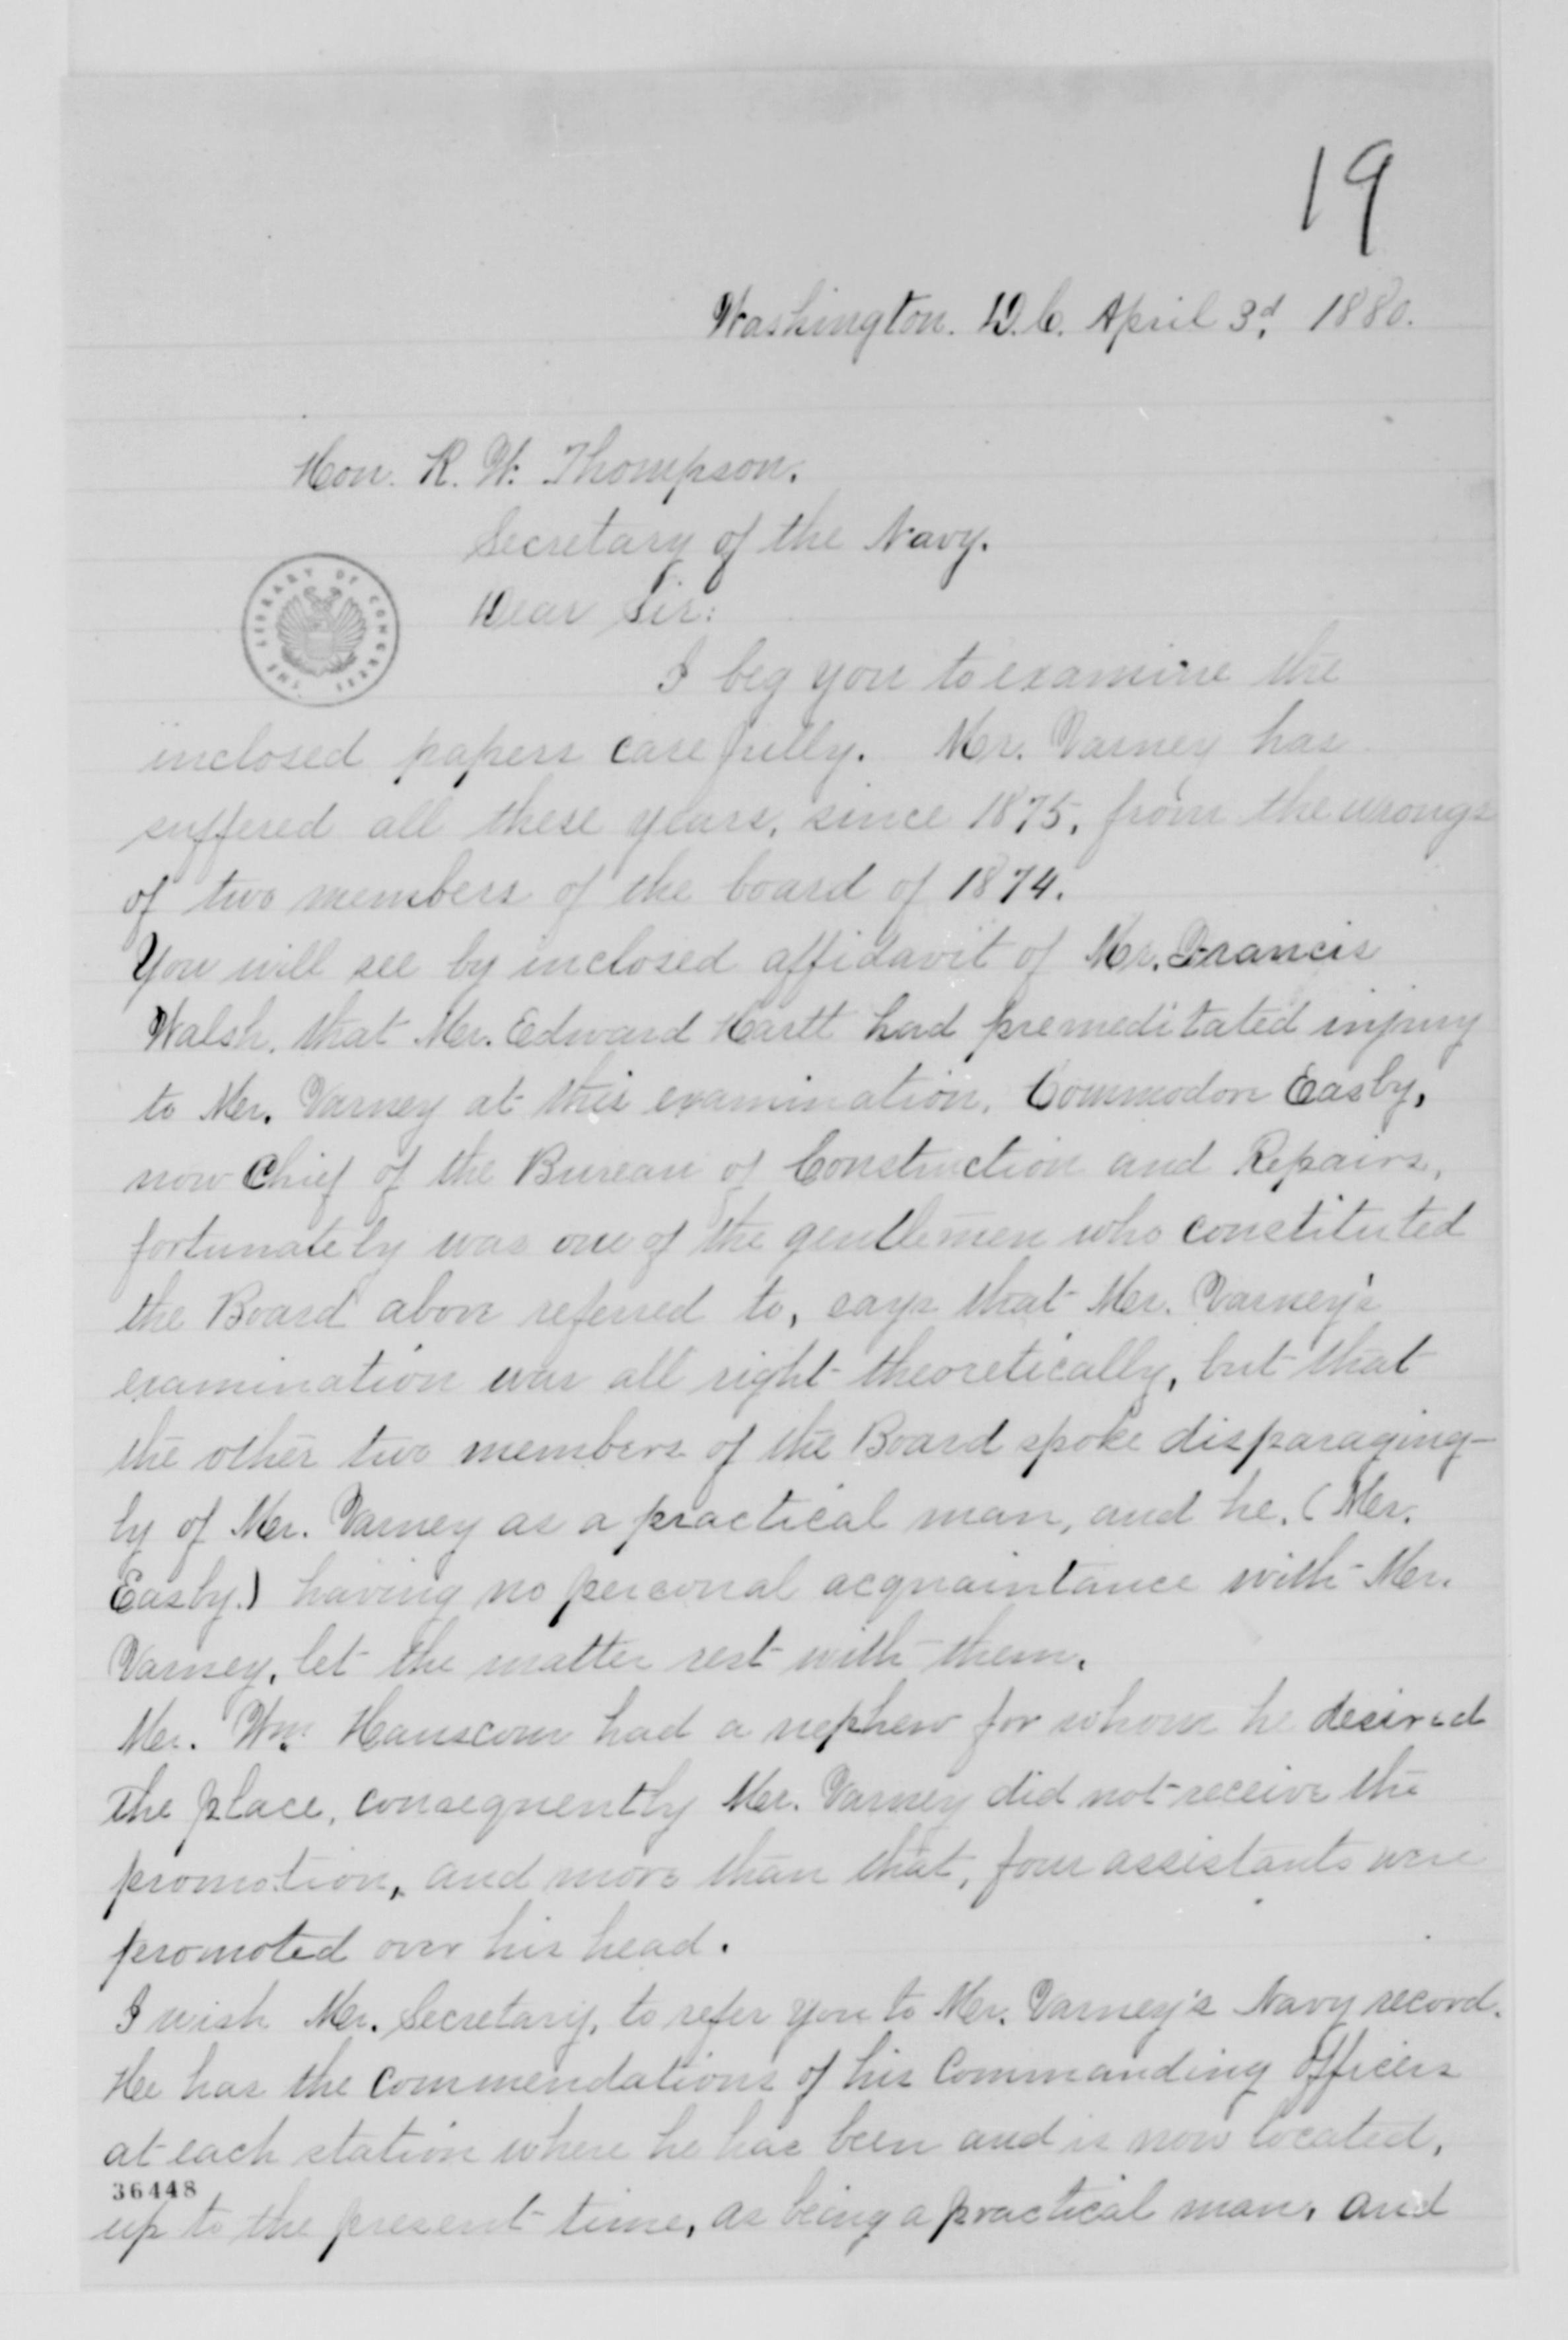 19
Washington. D.C. April 3d, 1880.
Hon. R. W. Thompson.
Secretary of the Navy.
THE LIBRARY OF CONGRESS
Dear Sir:
I beg you to examine the
inclosed papers carefully. Mr. Varney has
suffered all these years, since 1875, from the wrongs
of two members of the board of 1874.
You will see by inclosed affidavit of Mr. Francis
Walsh, that Mr. Edward Hartt had premeditated injury
to Mr. Varney at this examination. Commodore Easby,
now Chief of the Bureau of Construction and Repairs,
fortunately was one of the gentlemen who constituted
the Board above referred to, says that Mr. Varney's
examination was all right theoretically, but that
the other two members of the Board spoke disparaging-
ly of Mr. Varney as a practical man, and he, (Mr.
Easby.) having no personal acquaintance with Mr.
Varney, let the matter rest with them.
Mr. Wm. Hanscom had a nephew for whom he desired
the place, consequently Mr. Varney did not receive the
promotion, and more than that, four assistants were
promoted over his head.
I wish Mr. Secretary, to refer you to Mr. Varney's Navy record.
He has the commendations of his Commanding Officers
at each station where he has been and is now located,
36448
up to the present time, as being a practical man, and